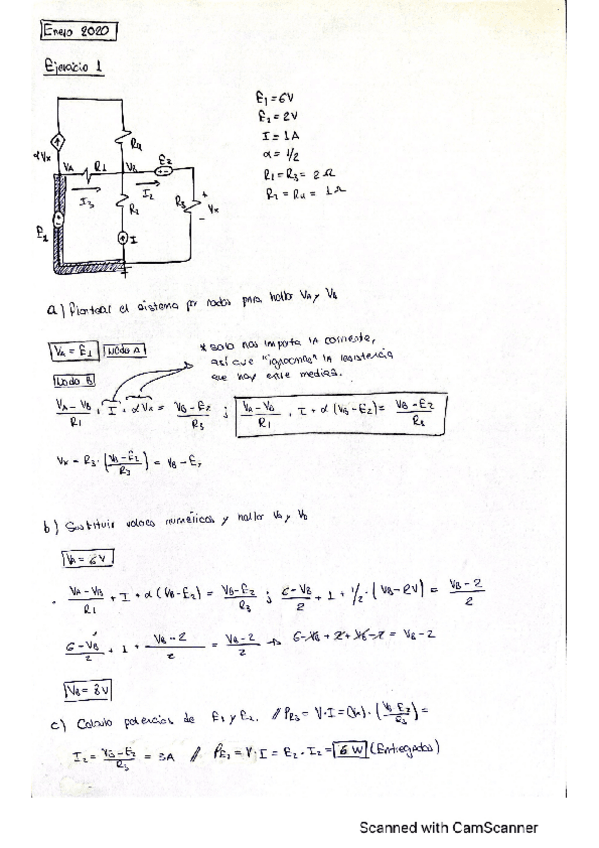 Enero 2020
Ejercicio 1
E1 = 6V
E2 = 2V
I = 1A
α = 1/2
R1 = R3 = 2 Ω
R2 = R4 = 1 Ω
αVx
R4
VA
R1
VB
E2
I3
I2
R2
R3
+
Vx
-
E1
I
a) Plantear el sistema por nodos para hallar VA y VB
VA = E1 NODO A
* solo nos importa la corriente,
así que "ignoramos" la resistencia
que hay entre medias.
Nodo B
(VA - VB)/R1 + I + αVx = (VB - E2)/R3 ; (VA - VB)/R1 + I + α(VB - E2) = (VB - E2)/R3
Vx = R3 · ((VB - E2)/R3) = VB - E2
b) Sustituir valores numéricos y hallar VA y VB
VA = 6V
(VA - VB)/R1 + I + α(VB - E2) = (VB - E2)/R3 ; (6 - VB)/2 + 1 + 1/2 · (VB - 2V) = (VB - 2)/2
(6 - VB)/2 + 1 + (VB - 2)/2 = (VB - 2)/2 → 6 - VB + 2 + VB - 2 = VB - 2
VB = 8V
c) Calculo potencias de E1 y E2. // PR3 = V·I = (Vx) · ((VB - E2)/R3) =
I2 = (VB - E2)/R3 = 3A // PE2 = V·I = E2 · I2 = 6 W (Entregados)
Scanned with CamScanner